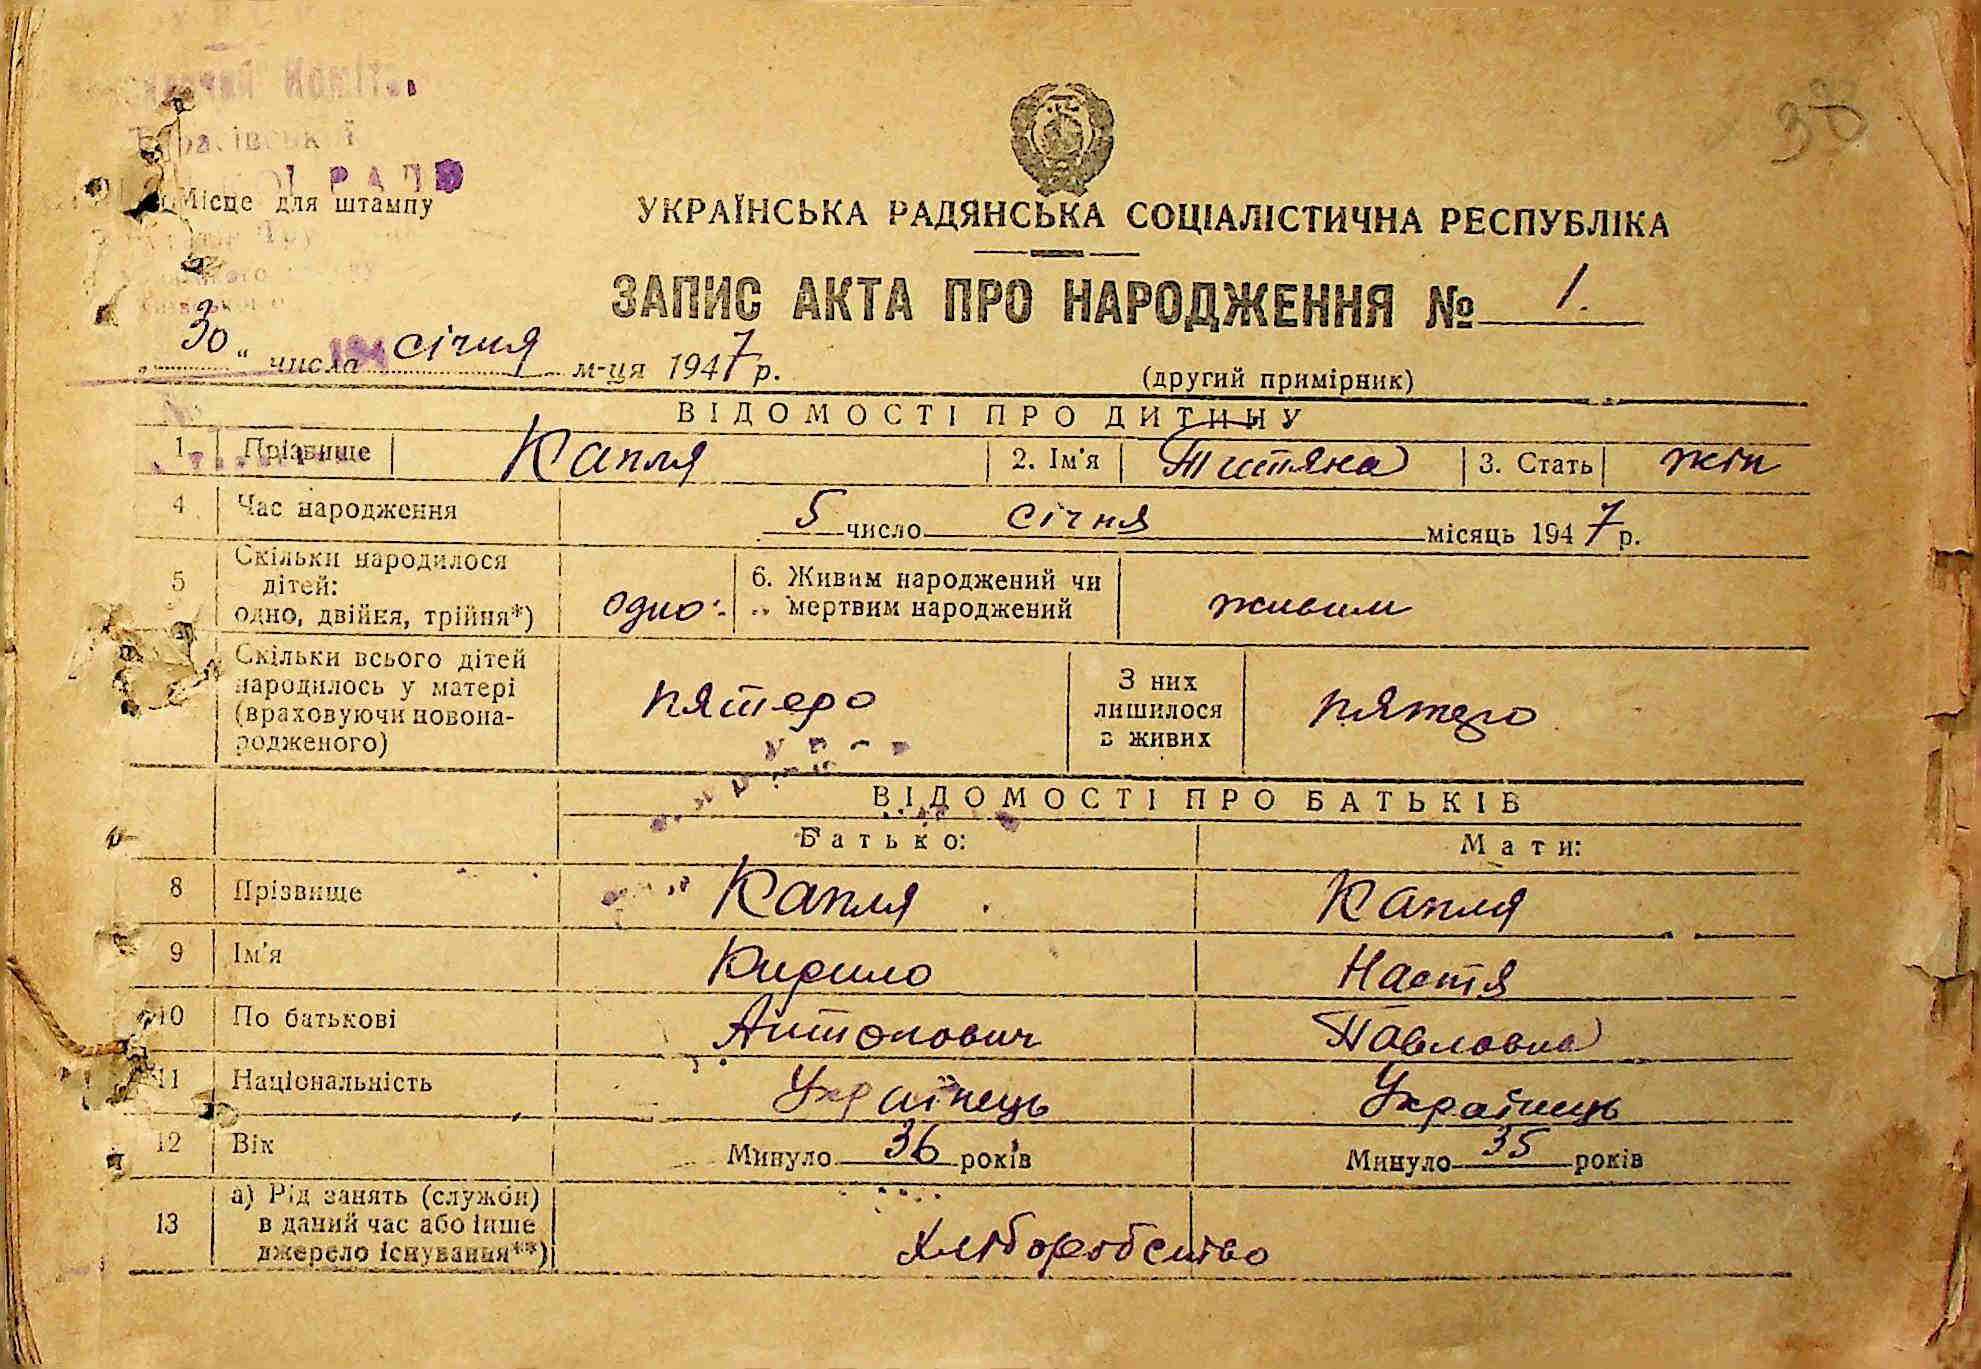 38
РАД
Місце для штампу
УКРАЇНСЬКА РАДЯНСЬКА СОЦІАЛІСТИЧНА РЕСПУБЛІКА
ЗАПИС АКТА ПРО НАРОДЖЕННЯ № 1.
„30“ числа січня м-ця 1947 р.
(другий примірник)
ВІДОМОСТІ ПРО ДИТИНУ
1 Прізвище Капля 2. Ім'я Титяна 3. Стать жін
4 Час народження 5 число січня місяць 1947 р.
5 Скільки народилося дітей: одно, двійня, трійня*) одно 6. Живим народжений чи мертвим народжений живим
Скільки всього дітей народилось у матері (враховуючи новонародженого) пятеро З них лишилося в живих пятеро
ВІДОМОСТІ ПРО БАТЬКІВ
Батько: Мати:
8 Прізвище Капля Капля
9 Ім'я Кирило Настя
10 По батькові Антонович Павловна
11 Національність Українець Українець
12 Вік Минуло 36 років Минуло 35 років
13 а) Рід занять (служби) в даний час або інше джерело існування**) Хліборобство